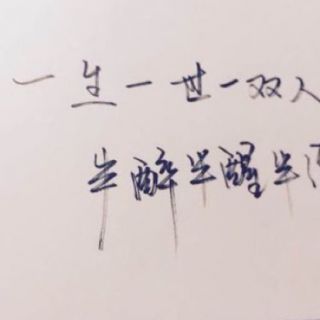 一生一世一双人
半醉半醒半